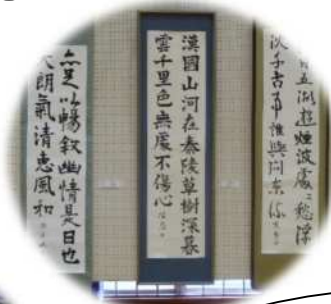 五湖遊煙波處々愁浮
沈千古事誰與問東流
漢國山河在秦陵草樹深暮
雲千里色無處不傷心
亦足以暢叙幽情是日也
天朗氣清恵風和